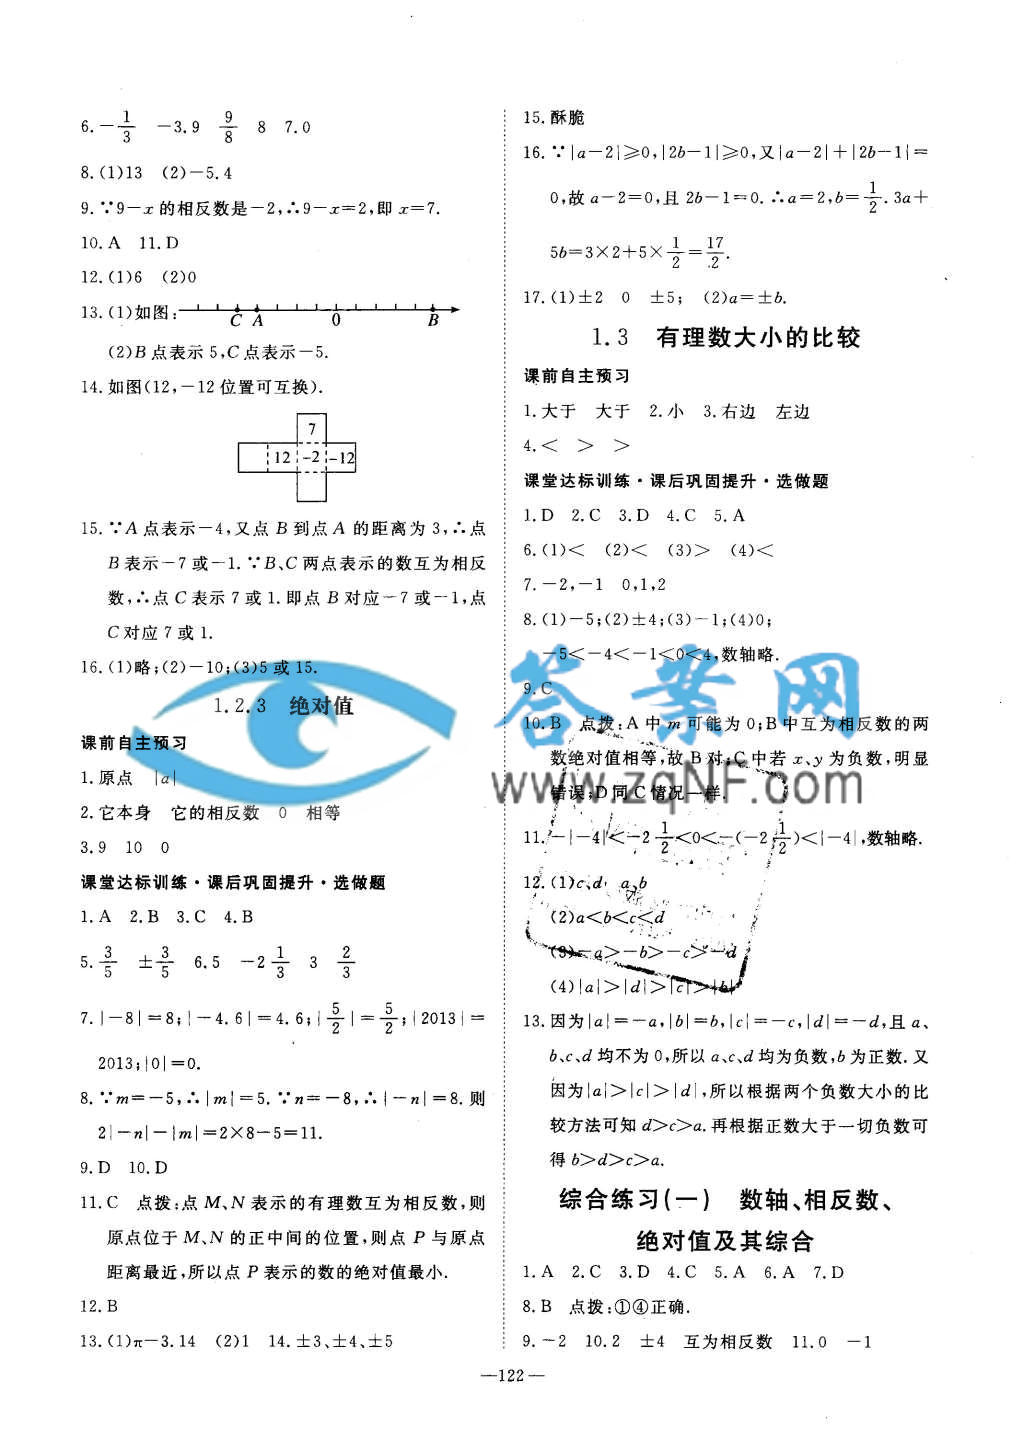 6.－1/3　－3.9　9/8　8　7.0
8.(1)13　(2)－5.4
9.∵9－x 的相反数是－2,∴9－x＝2,即 x＝7.
10.A　11.D
12.(1)6　(2)0
13.(1)如图:
C A 0 B
(2)B 点表示 5,C 点表示－5.
14.如图(12,－12 位置可互换).
7
12 －2 －12
15.∵A 点表示－4,又点 B 到点 A 的距离为 3,∴点
B 表示－7 或－1.∵B、C 两点表示的数互为相反
数,∴点 C 表示 7 或 1.即点 B 对应－7 或－1,点
C 对应 7 或 1.
16.(1)略;(2)－10;(3)5 或 15.
1.2.3　绝对值
课前自主预习
1.原点　|a|
2.它本身　它的相反数　0　相等
3.9　10　0
课堂达标训练·课后巩固提升·选做题
1.A　2.B　3.C　4.B
5.3/5　±3/5　6.5　－2 1/3　3　2/3
7.|－8|＝8;|－4.6|＝4.6;|5/2|＝5/2;|2013|＝
2013;|0|＝0.
8.∵m＝－5,∴|m|＝5.∵n＝－8,∴|－n|＝8.则
2|－n|－|m|＝2×8－5＝11.
9.D　10.D
11.C　点拨:点 M、N 表示的有理数互为相反数,则
原点位于 M、N 的正中间的位置,则点 P 与原点
距离最近,所以点 P 表示的数的绝对值最小.
12.B
13.(1)π－3.14　(2)1　14.±3、±4、±5
15.酥脆
16.∵|a－2|≥0,|2b－1|≥0,又|a－2|＋|2b－1|＝
0,故 a－2＝0,且 2b－1＝0.∴a＝2,b＝1/2.3a＋
5b＝3×2＋5×1/2＝17/2.
17.(1)±2　0　±5;　(2)a＝±b.
1.3　有理数大小的比较
课前自主预习
1.大于　大于　2.小　3.右边　左边
4.＜　＞　＞
课堂达标训练·课后巩固提升·选做题
1.D　2.C　3.D　4.C　5.A
6.(1)＜　(2)＜　(3)＞　(4)＜
7.－2,－1　0,1,2
8.(1)－5;(2)±4;(3)－1;(4)0;
－5＜－4＜－1＜0＜4,数轴略.
9.C
10.B　点拨:A 中 m 可能为 0;B 中互为相反数的两
数绝对值相等,故 B 对;C 中若 x、y 为负数,明显
错误;D 同 C 情况一样.
11.－|－4|＜－2 1/2＜0＜－(－2 1/2)＜|－4|,数轴略.
12.(1)c、d　a、b
(2)a＜b＜c＜d
(3)－a＞－b＞－c＞－d
(4)|a|＞|d|＞|c|＞|b|
13.因为|a|＝－a,|b|＝b,|c|＝－c,|d|＝－d,且 a、
b、c、d 均不为 0,所以 a、c、d 均为负数,b 为正数.又
因为|a|＞|c|＞|d|,所以根据两个负数大小的比
较方法可知 d＞c＞a.再根据正数大于一切负数可
得 b＞d＞c＞a.
综合练习(一)　数轴、相反数、
绝对值及其综合
1.A　2.C　3.D　4.C　5.A　6.A　7.D
8.B　点拨:①④正确.
9.－2　10.2　±4　互为相反数　11.0　－1
—122—
答案网
www.zqNF.com